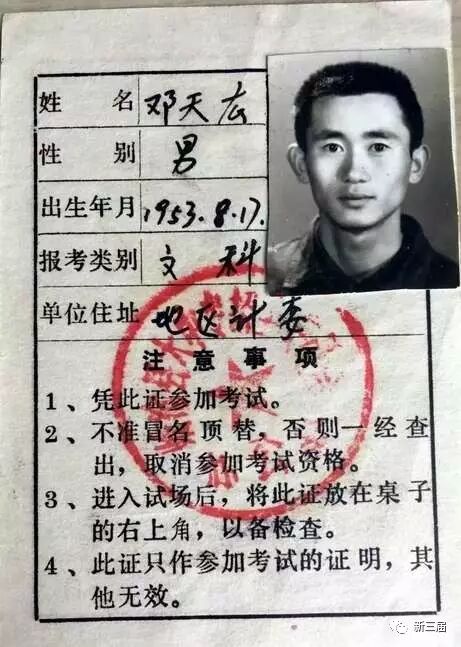 姓 名 邓天宏
性 别 男
出生年月 1953.8.17.
报考类别 文 科
单位住址 地区计委
注 意 事 项
1、凭此证参加考试。
2、不准冒名顶替，否则一经查
出，取消参加考试资格。
3、进入试场后，将此证放在桌子
的右上角，以备检查。
4、此证只作参加考试的证明，其
他无效。
新三届